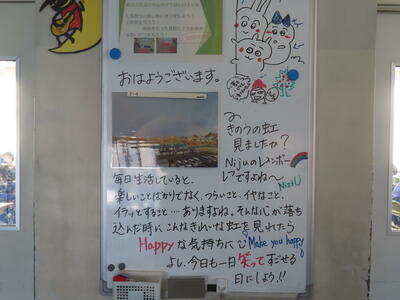 おはようございます。
きのうの虹
見ましたか？
Nijuのレインボー
ですよね〜
NiziU
毎日生活していると、
楽しいことばかりでなく、つらいこと、イヤなこと、
イラッとすること…ありますよね。そんな心が落ち
込んだ時にこんなきれいな虹を見れたら
Happyな気持ちに
Make you happy
よし、今日も一日笑ってすごせる
日にしよう!!